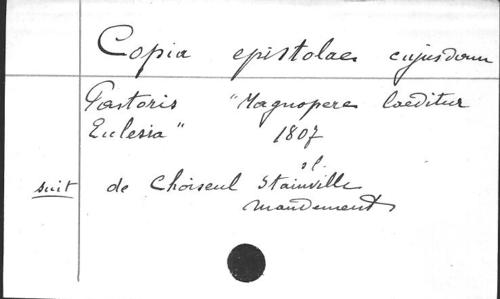 Copia epistolae cujusdam
Pastoris "Magnopere laeditur
Eulesia" 1807
sl.
suit de Choiseul Stainville
mandements